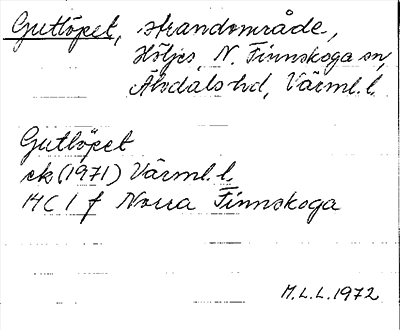 Gutlöpet, strandområde,
Höljes, N. Finnskoga sn,
Älvdals hd, Värml. l.
Gutlöpet
ek (1971) Värml. l.
14C 1 f Norra Finnskoga
M.L.L. 1972